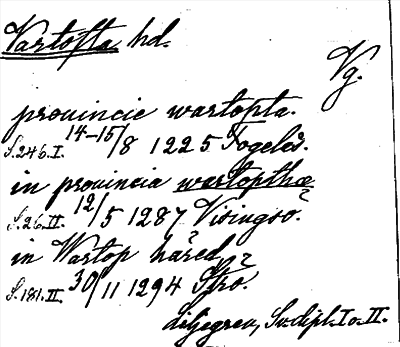 Vartofta hd.
Vg.
provincie wartopta.
S.246.I. 14-15/8 1225 Fogelås.
in provincia wartopthæ
S.26.II. 12/5 1287 Visingsö.
in Wartop häred
S.181.II. 30/11 1294
Liljegren, Sv.dipl. I o. II.